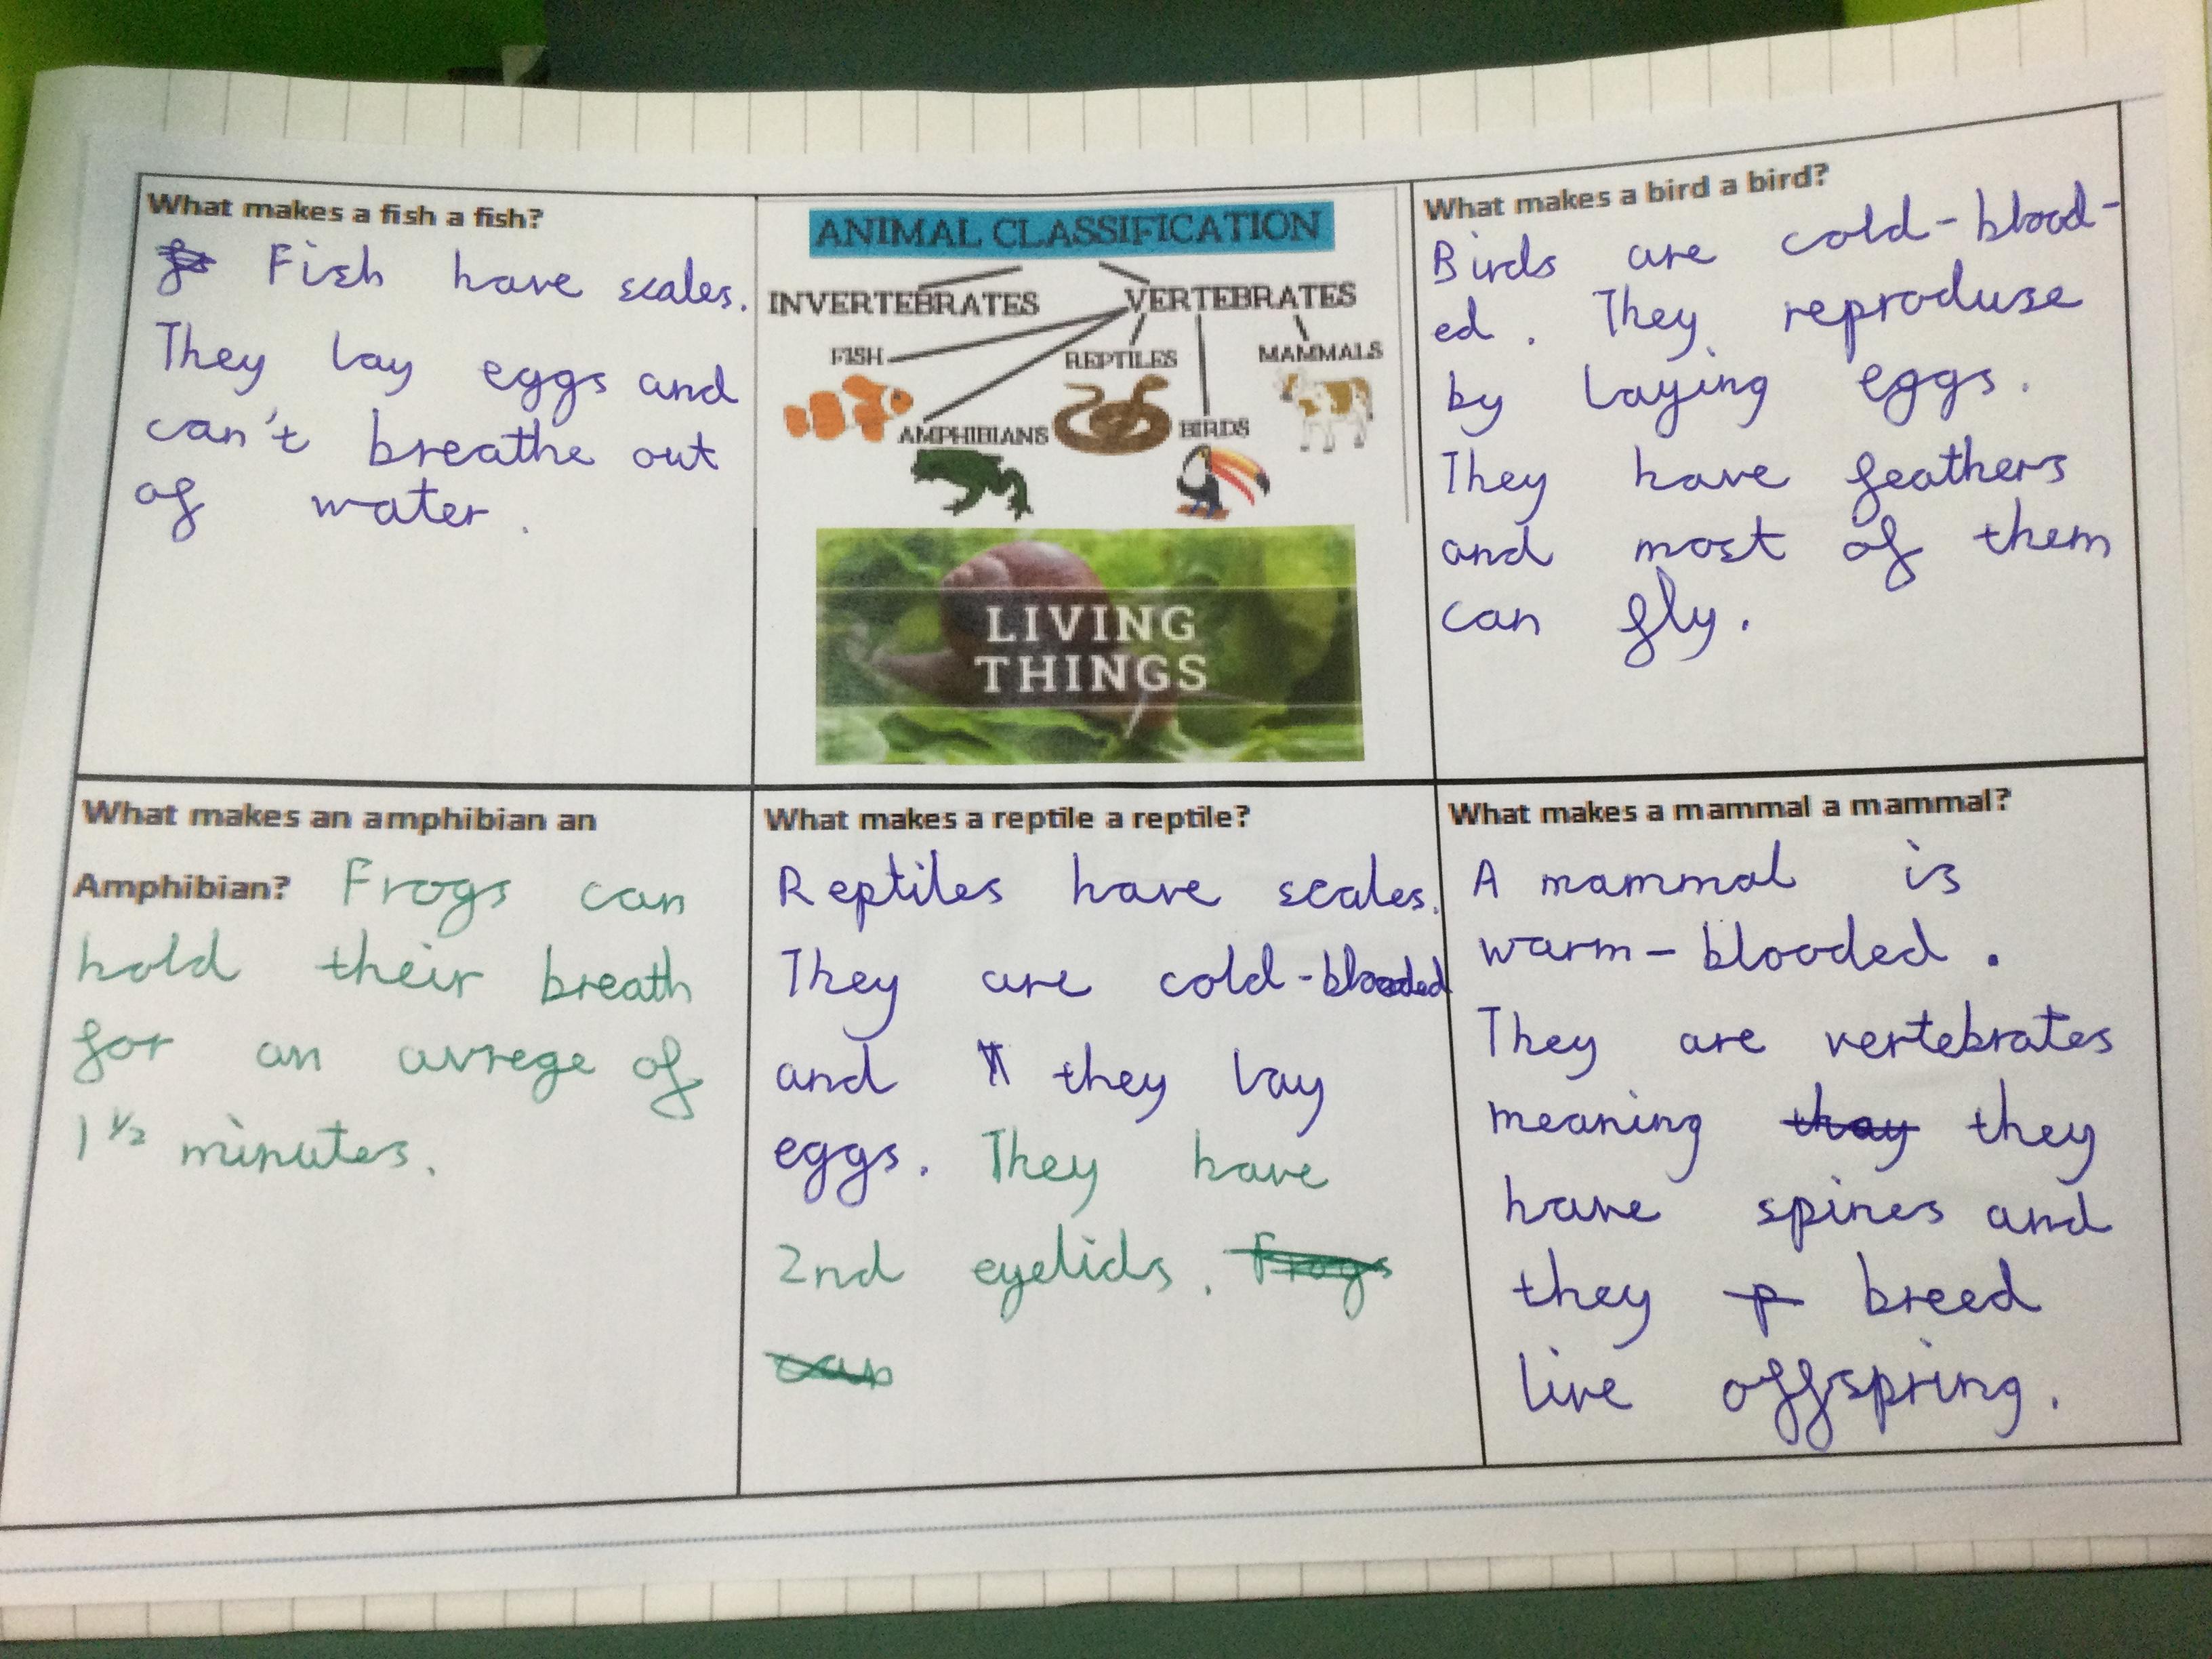 What makes a fish a fish?
Fish have scales.
They lay eggs and
can't breathe out
of water.
ANIMAL CLASSIFICATION
INVERTEBRATES VERTEBRATES
FISH REPTILES MAMMALS
AMPHIBIANS BIRDS
LIVING
THINGS
What makes a bird a bird?
Birds are cold-blood-
ed. They reproduse
by laying eggs.
They have feathers
and most of them
can fly.
What makes an amphibian an
Amphibian? Frogs can
hold their breath
for an avrege of
1 1/2 minutes.
What makes a reptile a reptile?
Reptiles have scales.
They are cold-blooded
and they lay
eggs. They have
2nd eyelids. Frogs
can
What makes a mammal a mammal?
A mammal is
warm-blooded.
They are vertebrates
meaning thay they
have spines and
they p breed
live offspring.